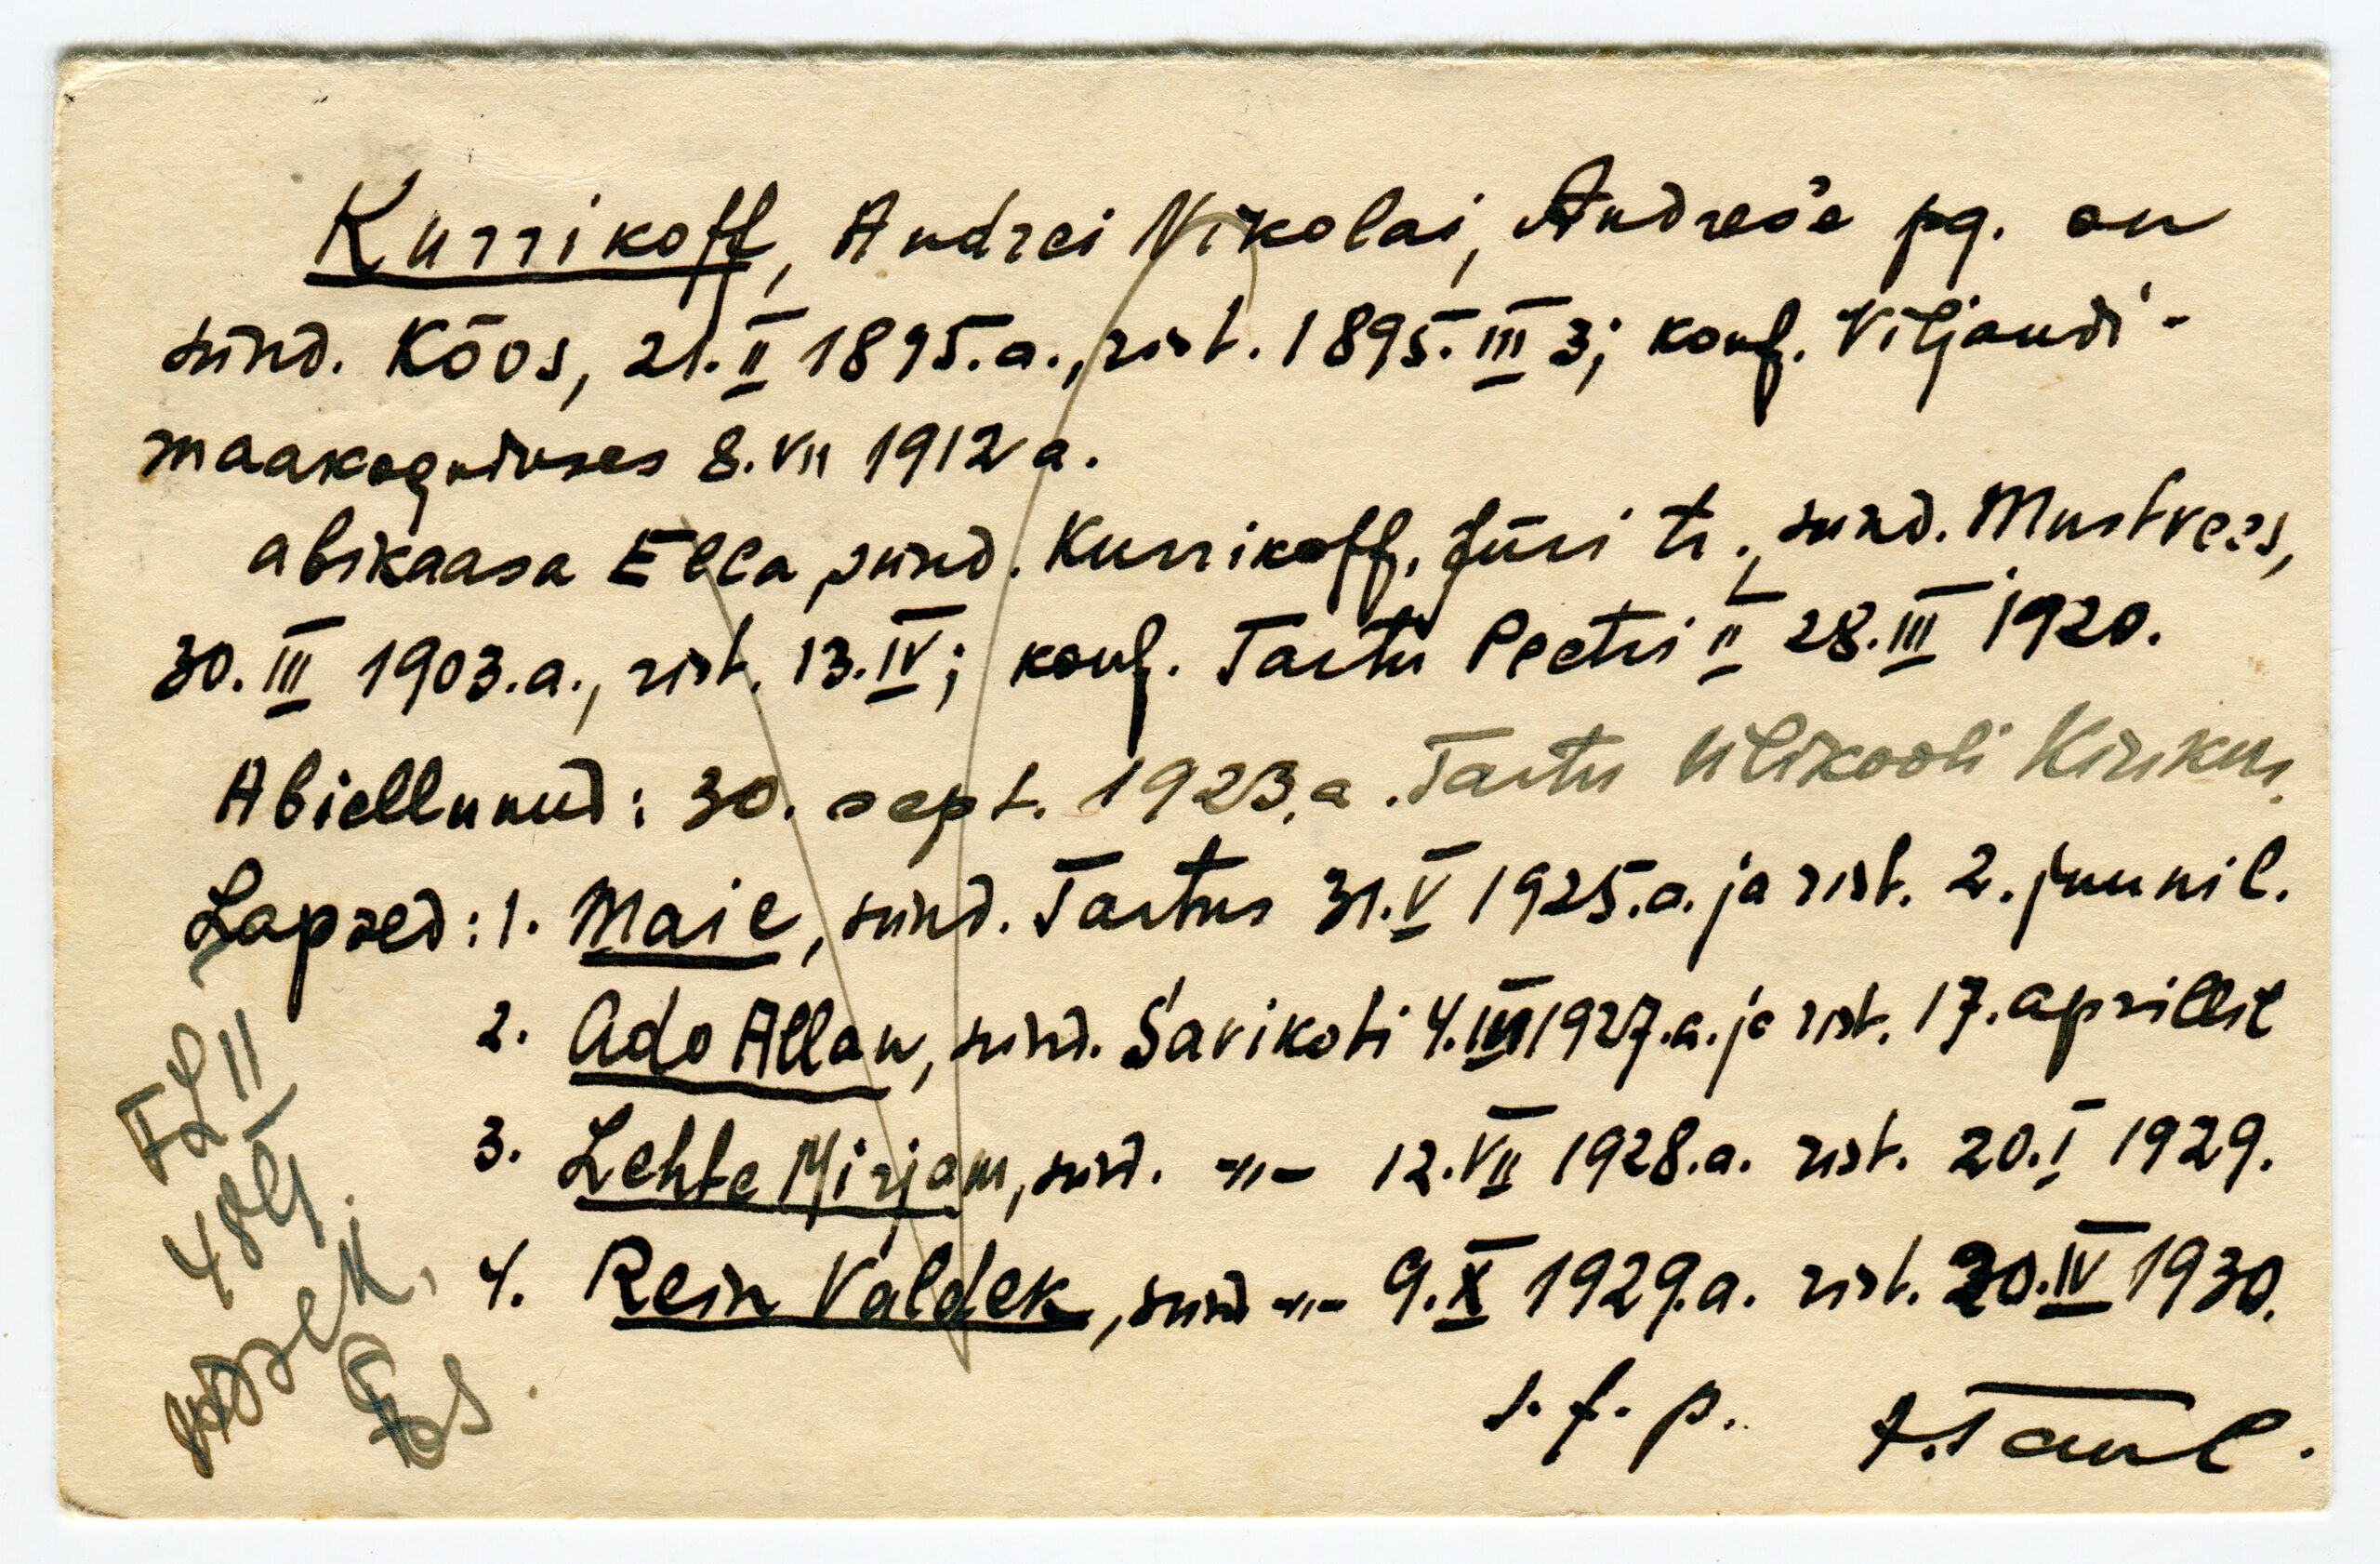 Kurrikoff, Andrei Nikolai, Andres'e pg. on
sünd. Kõos, 21. II 1895.a., rist. 1895. III 3; konf. Viljandi-
maakoguduses 8. VII 1912 a.
abikaasa Ella sünd. Kurrikoff, Jüri tr., sünd. Mustvees,
30. III 1903.a., rist. 13. IV; konf. Tartu Peetri II 28. III 1920.
Abiellunud: 30. sept. 1923.a. Tartu Ülikooli Kirikus.
Lapsed: 1. Maie, sünd. Tartus 31. V 1925.a. ja rist. 2. juunil.
2. Ado Allan, sünd. Savikoti 4. III 1927.a. ja rist. 17. aprillil
3. Lehte Mirjam, sünd. -"- 12. VII 1928.a. rist. 20. I 1929.
4. Rein Valdek, sünd -"- 9. X 1929.a. rist. 20. IV 1930.
s. f. p. A. Taul.
II